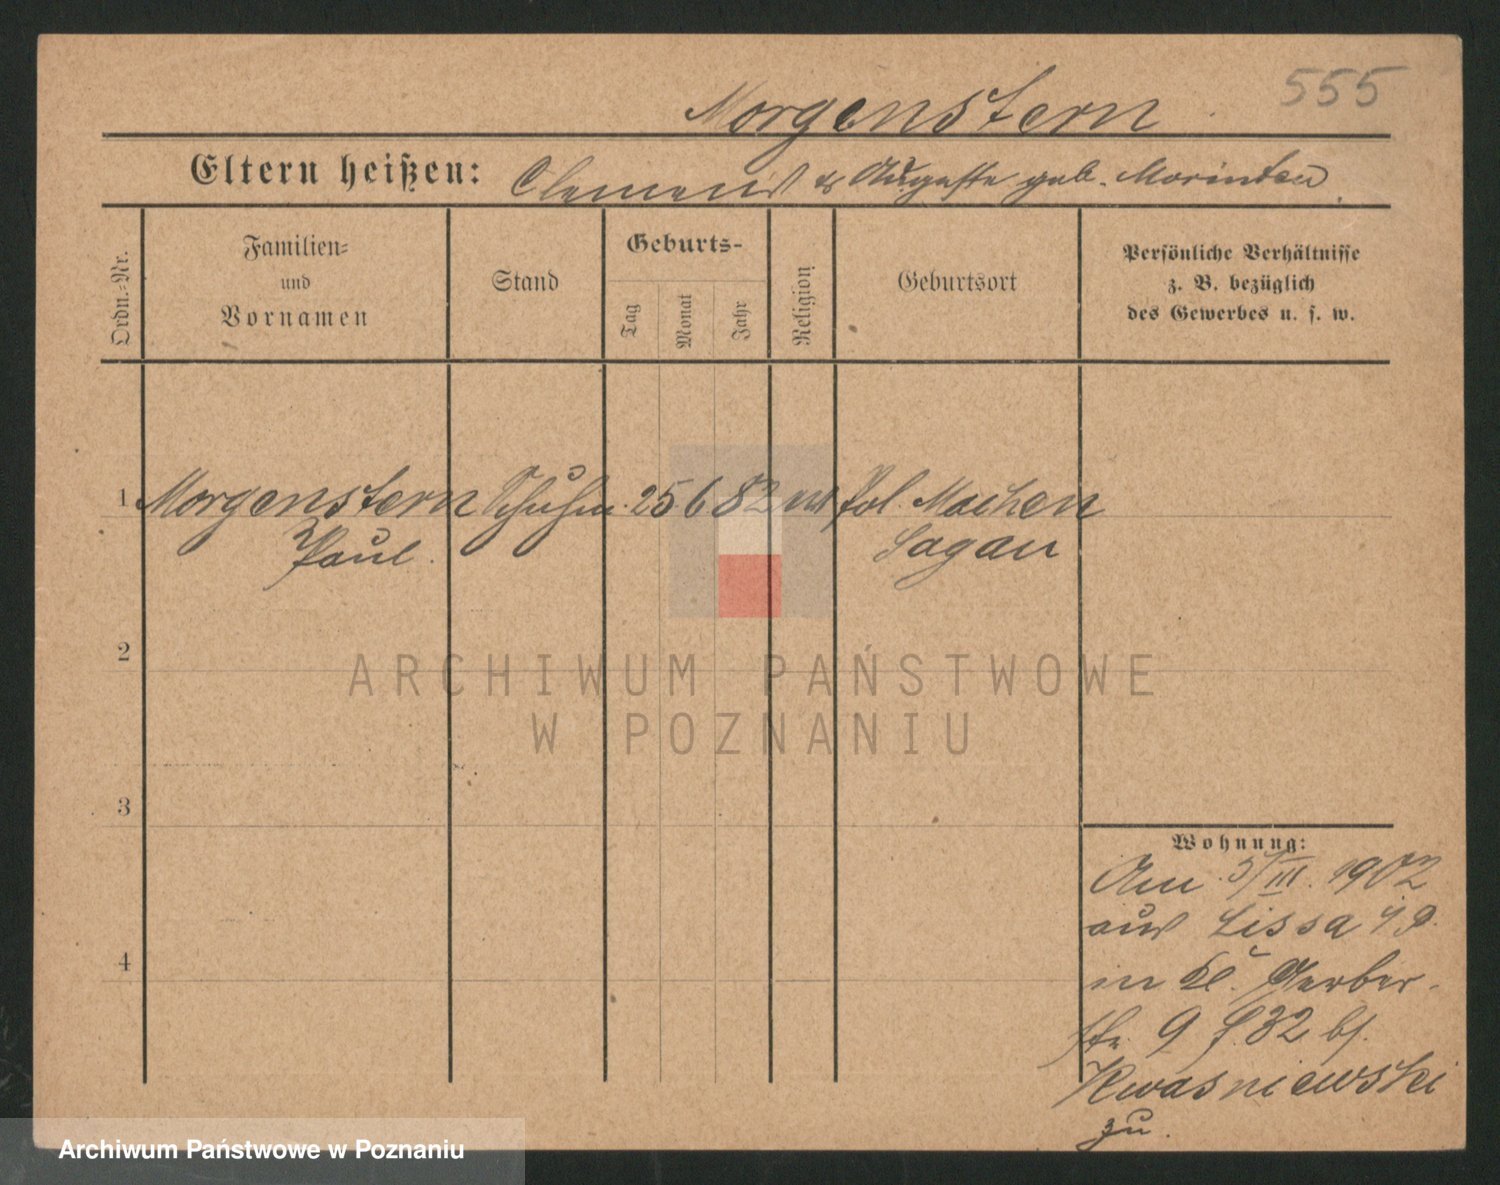 555
Morgenstern
Eltern heißen: Clemens & Auguste geb.
Ordn.-Nr.
Familien-
und
Vornamen
Stand
Geburts-
Tag
Monat
Jahr
Religion
Geburtsort
Persönliche Verhältnisse
z. B. bezüglich
des Gewerbes u. s. w.
1 Morgenstern Schuhm. 25 6 82 Pol. Machen
Paul. Sagan
2
ARCHIWUM PAŃSTWOWE
W POZNANIU
3
Wohnung:
Am 5/III. 1902
aus Lissa i. P.
in Kl. Gerber-
str. 9 bj.
Kwasniewski
zu.
4
Archiwum Państwowe w Poznaniu